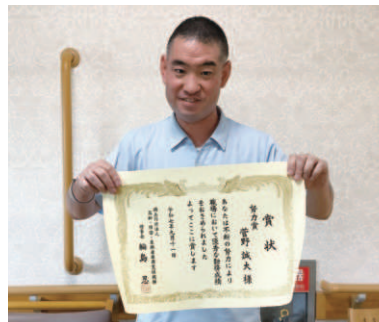 賞状
努力賞
菅野 誠大様
あなたは不断の努力により
職場において優秀な勤務成績
をおさめられました
よってここに賞します
令和七年九月十一日
輪島 忍